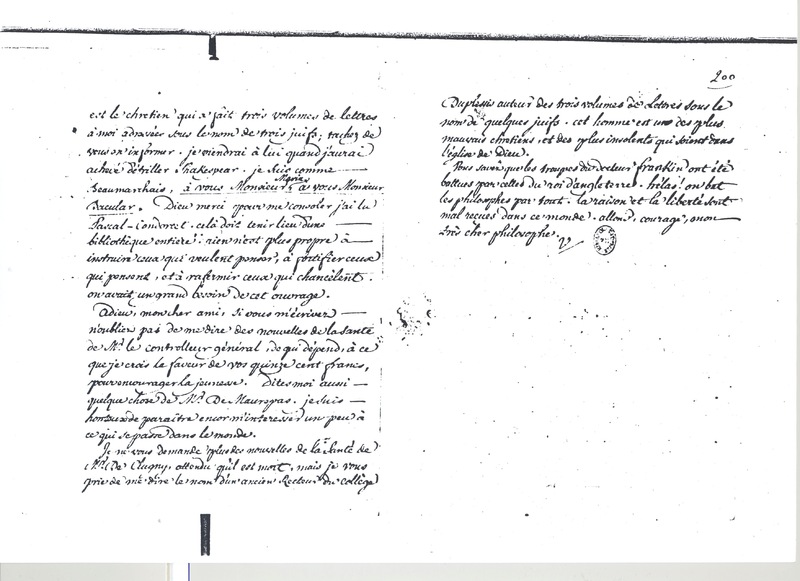 est le chretien qui a fait trois volumes de lettres
à moi adressées sous le nom de trois juifs; tachez de
vous en informer. je viendrai à lui quand j'aurai
achevé d'étriller Shakespear. je suis comme
Marin
Beaumarchais, à vous Monsieur, à vous Monsieur
Bacular. Dieu merci pour me consoler j'ai lu
Pascal-Condorcet. celà doit tenir lieu d'une
bibliothèque entière: rien n'est plus propre à
instruire ceux qui veulent penser, à fortifier ceux
qui pensent, et à rafermir ceux qui chancèlent.
on avait un grand besoin de cet ouvrage.
Adieu, mon cher ami, si vous m'écrivez
n'oubliez pas de me dire des nouvelles de la santé
de Mr. le controlleur général, de qui dépend, à ce
que je crois la faveur de vos quinze cent francs,
pour encourager la jeunesse. Dites moi aussi
quelque chose de Mr. De Maurepas. je suis
honteux de paraître encor m'interesser un peu à
ce qui se passe dans le monde.
Je ne vous demande plus des nouvelles de la santé de
Mr. De Clugny, attendu qu'il est mort, mais je vous
prie de me dire le nom d'un ancien Recteur du collège
200
Duplessis auteur des trois volumes de Lettres sous le
nom de quelques juifs. cet homme est un des plus
mauvais chretiens, et des plus insolents qui soient dans
l'église de Dieu.
Vous savez que les troupes du docteur franklin ont été
battues par celles du roi d'angleterre. hélas! on bat
les philosophes par tout. la raison et la liberté sont
mal reçues dans ce monde. allons, courage, mon
très cher philosophe.